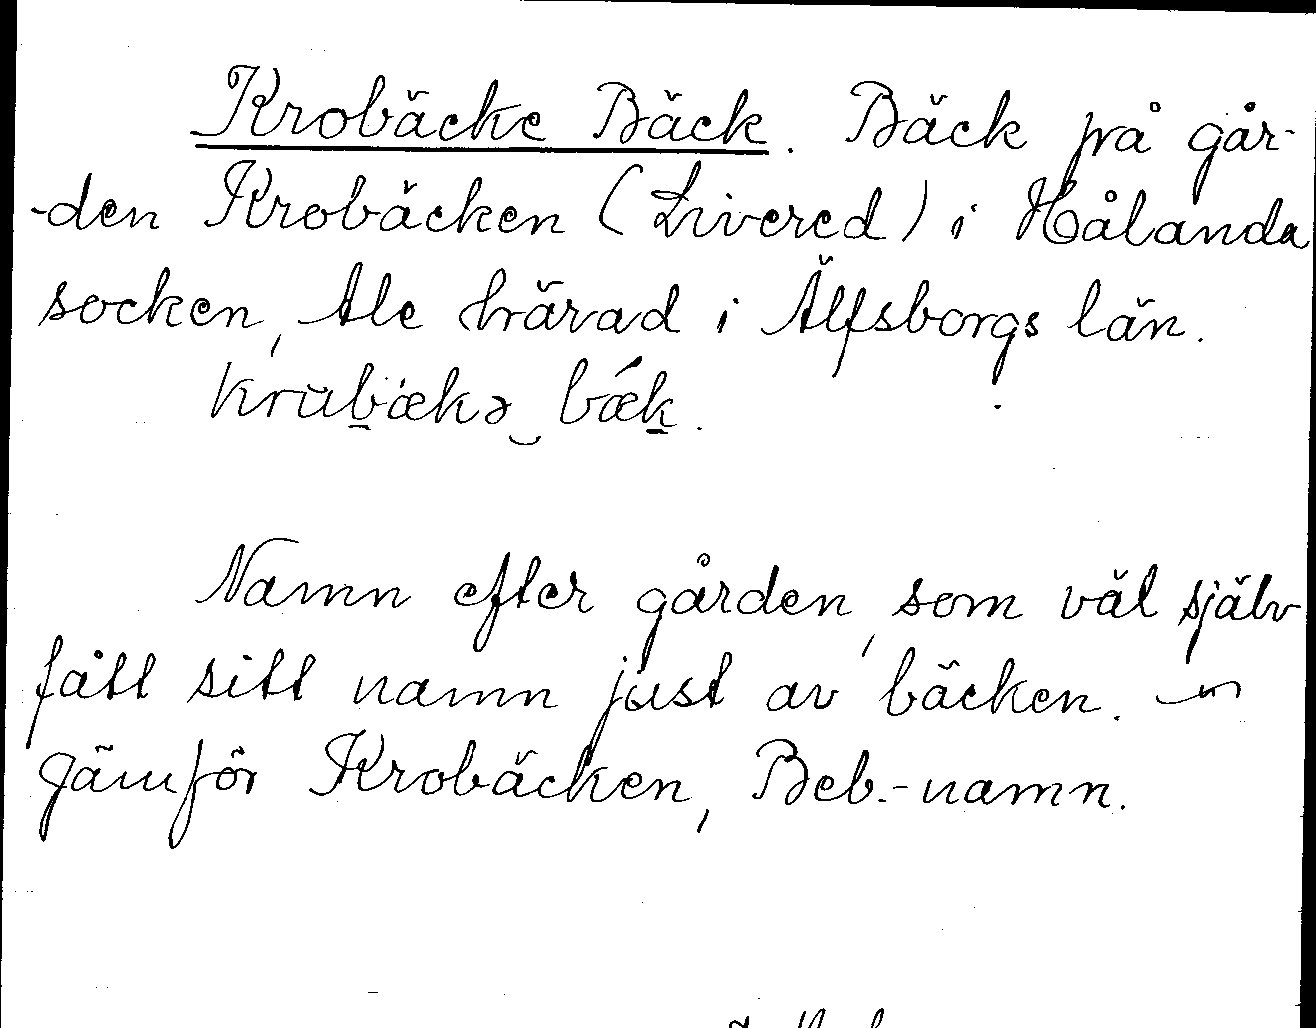 Krobäcke Bäck. Bäck på går-
-den Krobäcken (Livered) i Hålanda
socken, Ale härad i Älfsborgs län.
krùbæ̀kə‿bǽk.
Namn efter gården, som väl själv
fått sitt namn just av bäcken. —
Jämför Krobäcken, Beb.-namn.